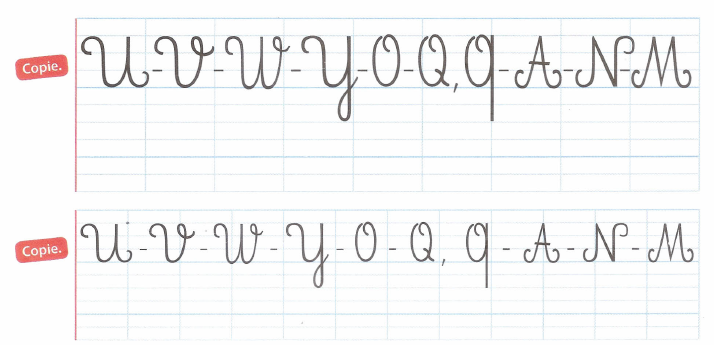 Copie. U-V-W-Y-O-Q,q-A-N-M
Copie. U-V-W-Y-O-Q,q-A-N-M